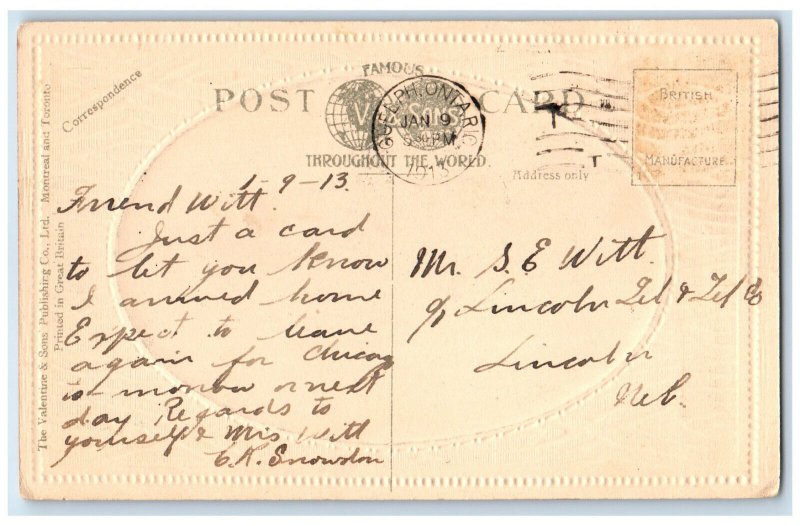 Correspondence
FAMOUS
POST CARD
V & Sons
THROUGHOUT THE WORLD.
GUELPH, ONTARIO
JAN 9
5 30 PM
1913
BRITISH
MANUFACTURE
Address only
The Valentine & Sons Publishing Co., Ltd. Montreal and Toronto
Printed in Great Britain
1-9-13.
Friend Witt.
Just a card
to let you know
I arrived home
Expect to leave
again for Chicago
to-morrow or next
day Regards to
yourself & Mrs Witt
C.K. Snowdon
Mr. S. E Witt.
c/o Lincoln Tel & Tel Co
Lincoln
Neb.